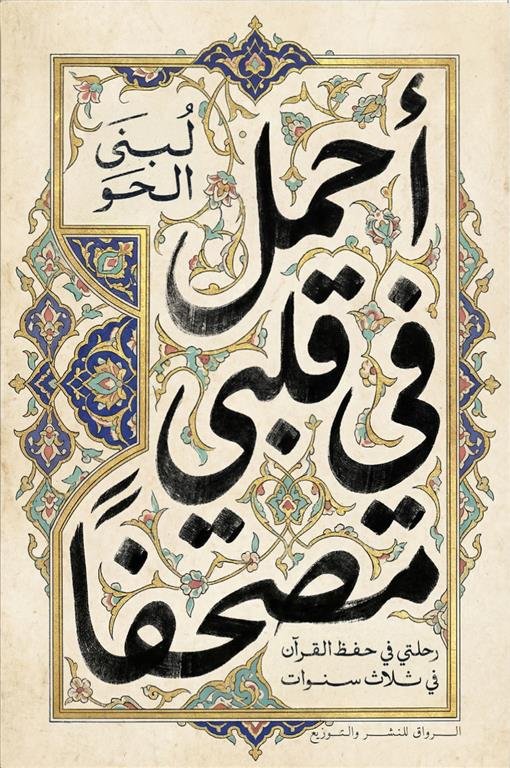 لُبنَى
الحَو
أحمل
في قلبي
مصحفًا
رحلتي في حفظ القرآن
في ثلاث سنوات
الرواق للنشر والتوزيع